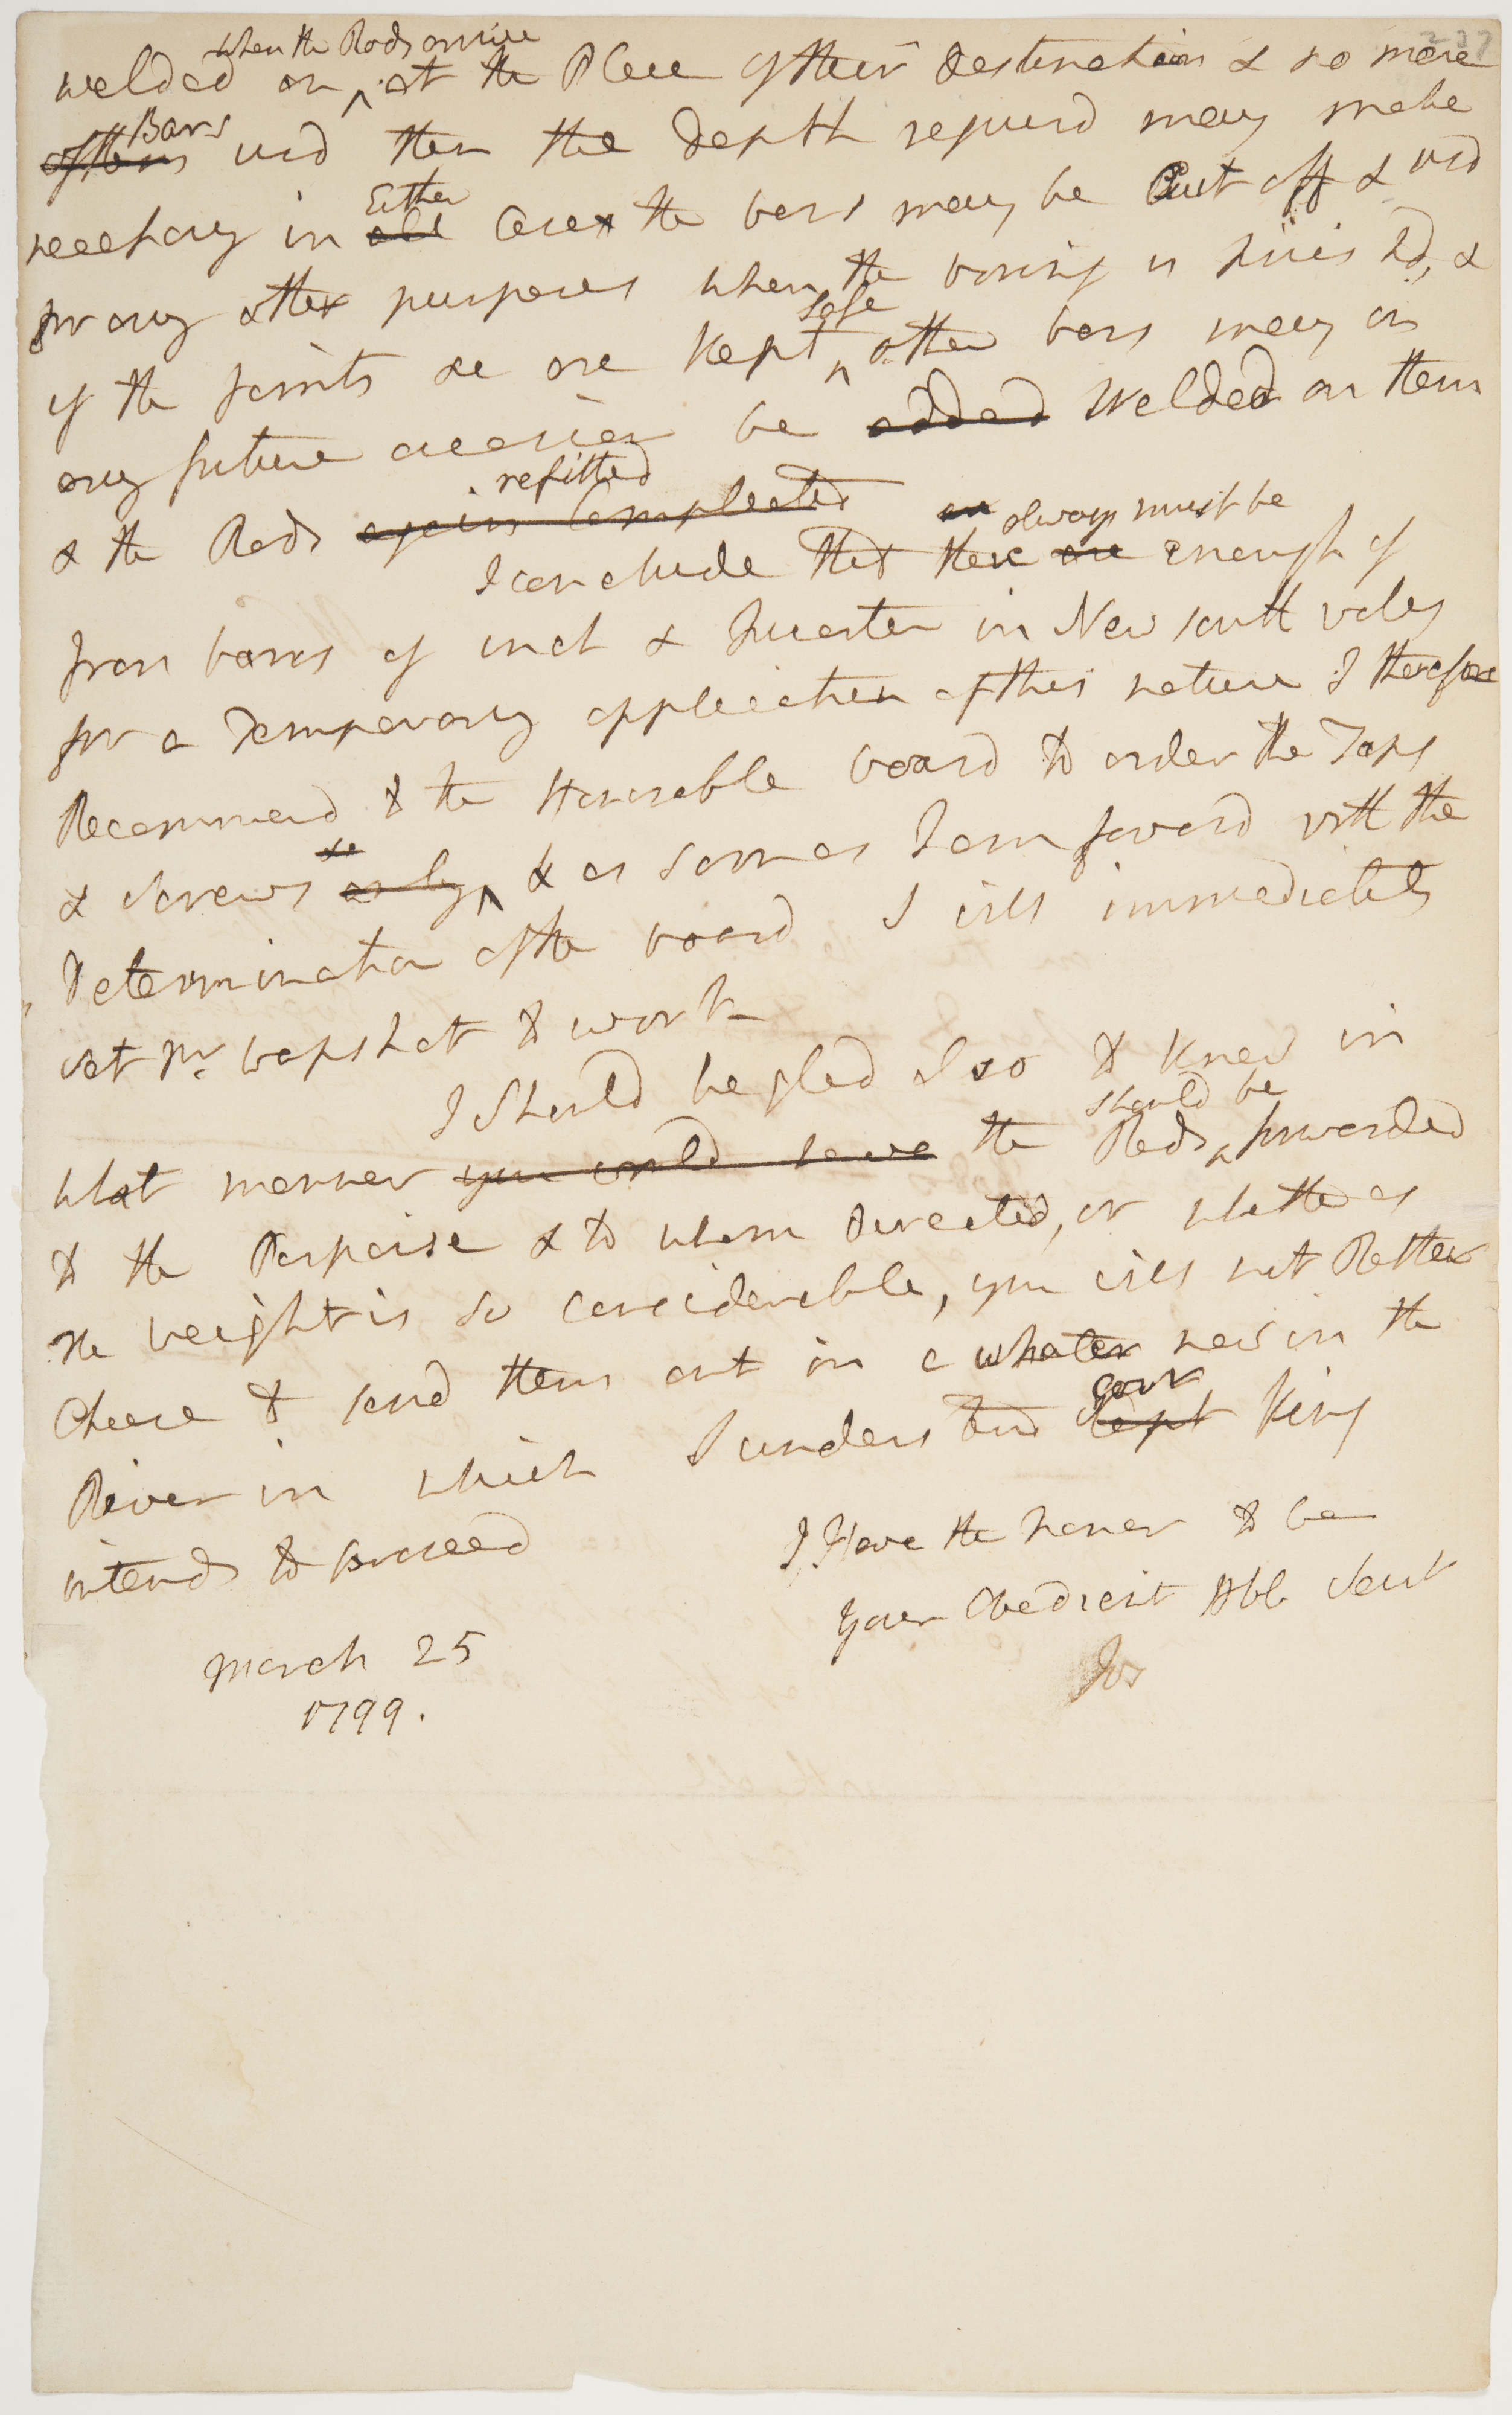 237
when the Rods arrive
welded on ^ at the Place of their destination & no more
Bars
of them usd then the depth requird may make
Either
necessary in all Case the bars may be Cut off & usd
for any other purposes when the boring is finishd, &
safe
if the joints &c are kept ^ other bars may on
any future occasion be added Welded on them
refitted
& the Rods again Compleated
an always must be
I conclude that there are enough of
Iron barrs of inch & Quarter in New South wales
for a Temporary application of this nature I therefore
Recommend to the Honorable board to order the Taps
&c
& screws only ^ & as soon as I am favord with the
Determination of the board I will immediately
set Mr. wapshot to work
I Should be glad also to know in
should be
what manner you would have the Rods ^ forwarded
to the Porpoise & to whom directed, or whether as
the weight is so considerable, you will not Rather
Chose to send them out in a whaler now in the
Govr
River in which I understand Capt King
intends to proceed
I Have the honor to be
your Obedient Hble Servt
Jos
March 25
1799.